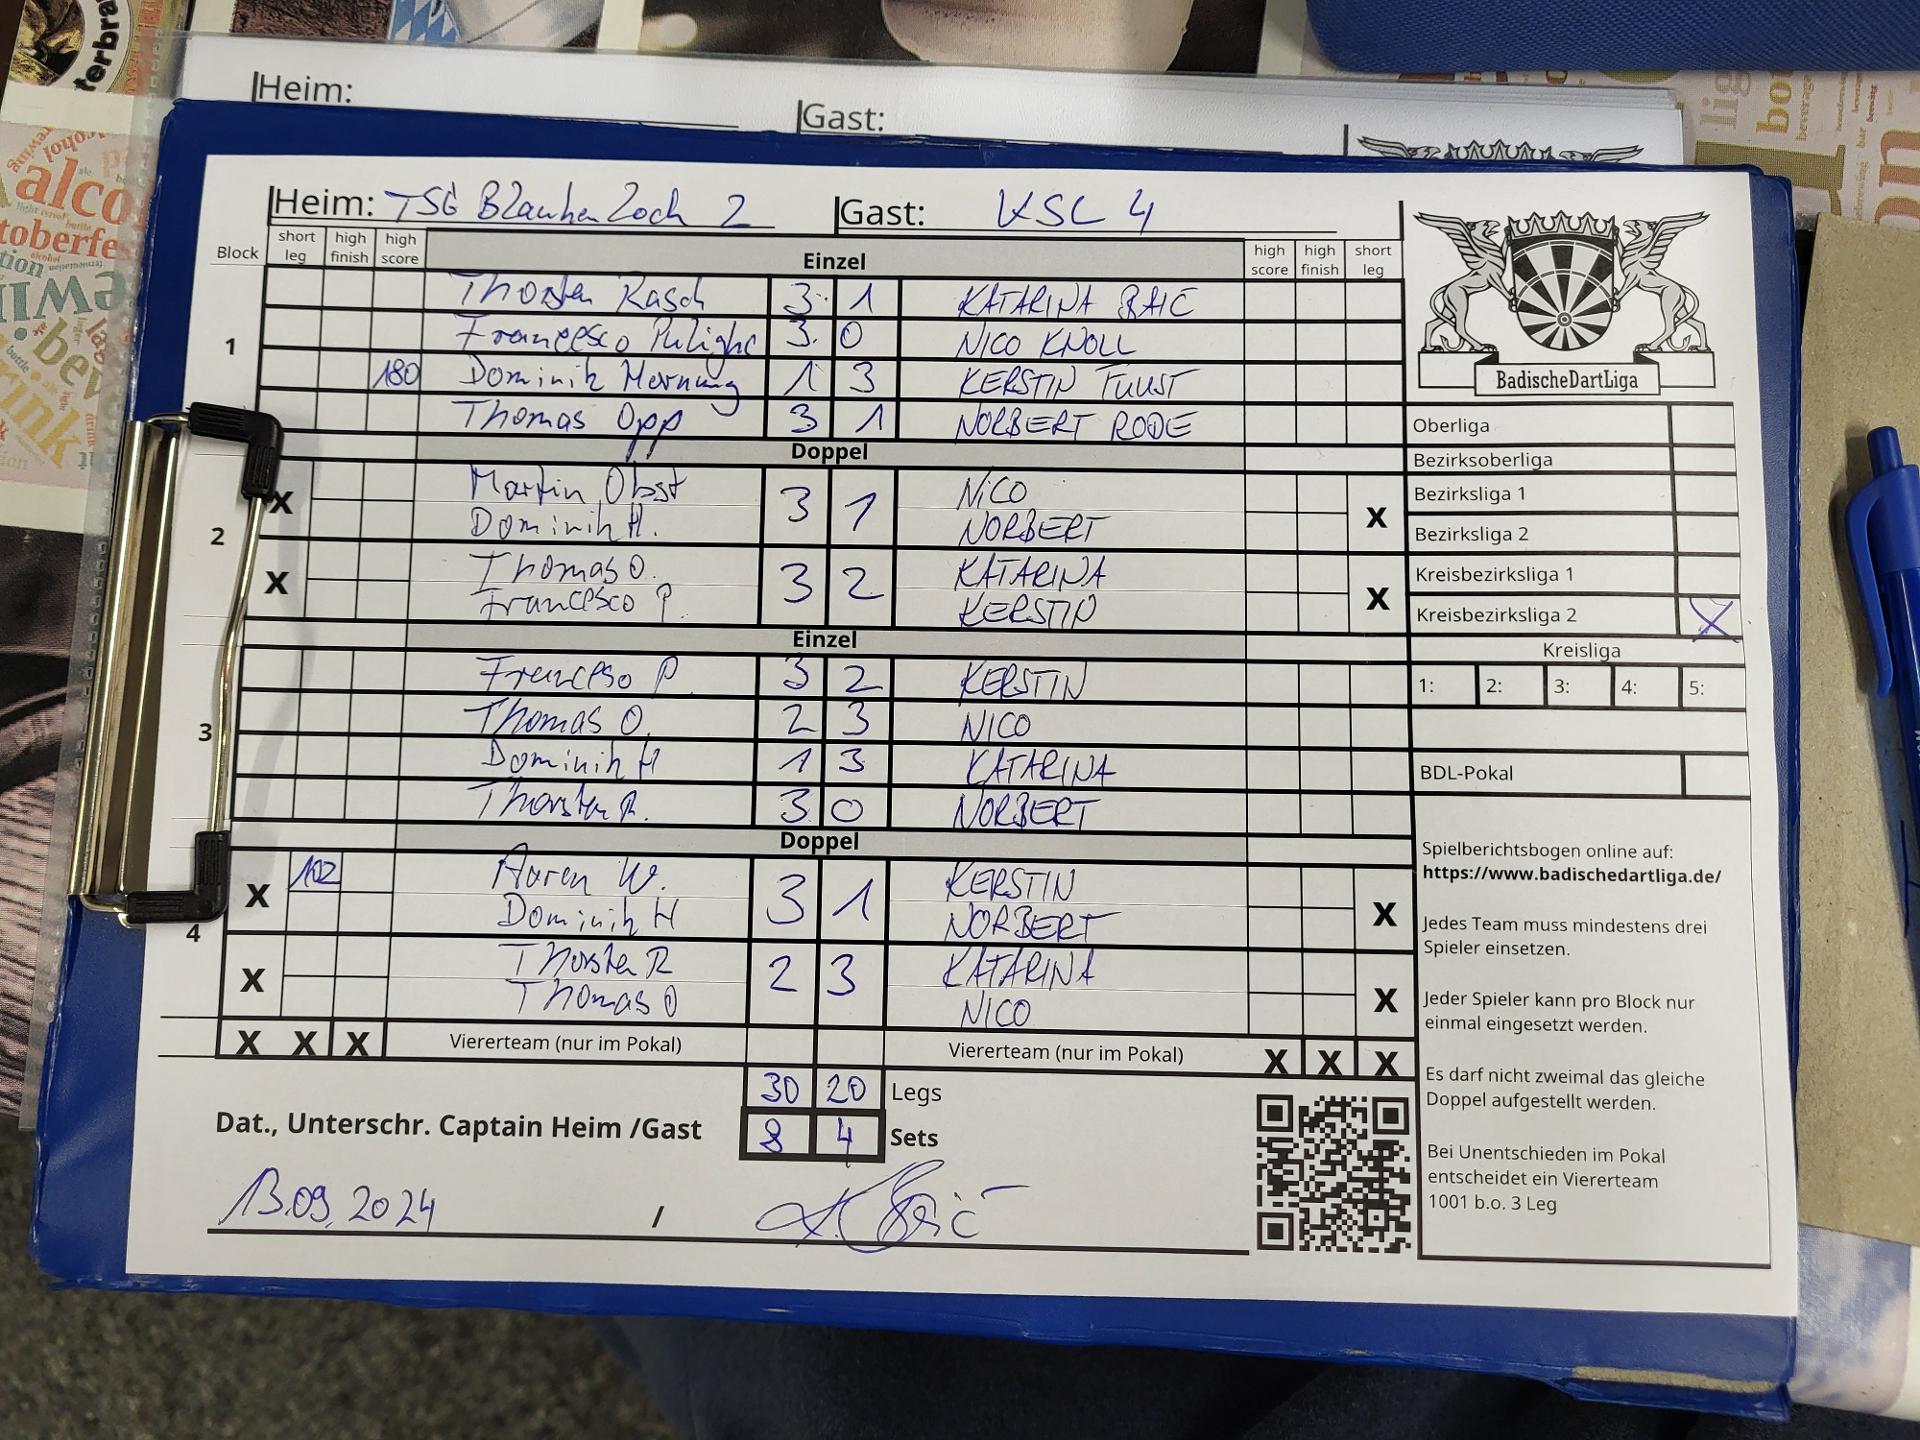 Heim:
Gast:
Heim: TSG Blankenloch 2 Gast: KSC 4
Block short leg high finish high score Einzel high score high finish short leg
1
Thorsten Rasch 3 1 KATARINA BAIĆ
Francesco 3 0 NICO KNOLL
180 Dominik Hornung 1 3 KERSTIN
Thomas Opp 3 1 NORBERT RODE
Doppel
2
X Martin Obst 3 1 NICO X
Dominik H. NORBERT
X Thomas O. 3 2 KATARINA X
Francesco P. KERSTIN
Einzel
3
Francesco P. 3 2 KERSTIN
Thomas O. 2 3 NICO
Dominik H 1 3 KATARINA
Thorsten R. 3 0 NORBERT
Doppel
4
X 102 Aaron W. 3 1 KERSTIN X
Dominik H NORBERT
X Thorsten R 2 3 KATARINA X
Thomas O NICO
X X X Viererteam (nur im Pokal) Viererteam (nur im Pokal) X X X
30 20 Legs
Dat., Unterschr. Captain Heim /Gast 8 4 Sets
13.09.2024 / K. Baić
BadischeDartLiga
Oberliga
Bezirksoberliga
Bezirksliga 1
Bezirksliga 2
Kreisbezirksliga 1
Kreisbezirksliga 2 X
Kreisliga
1: 2: 3: 4: 5:
BDL-Pokal
Spielberichtsbogen online auf:
https://www.badischedartliga.de/
Jedes Team muss mindestens drei
Spieler einsetzen.
Jeder Spieler kann pro Block nur
einmal eingesetzt werden.
Es darf nicht zweimal das gleiche
Doppel aufgestellt werden.
Bei Unentschieden im Pokal
entscheidet ein Viererteam
1001 b.o. 3 Leg